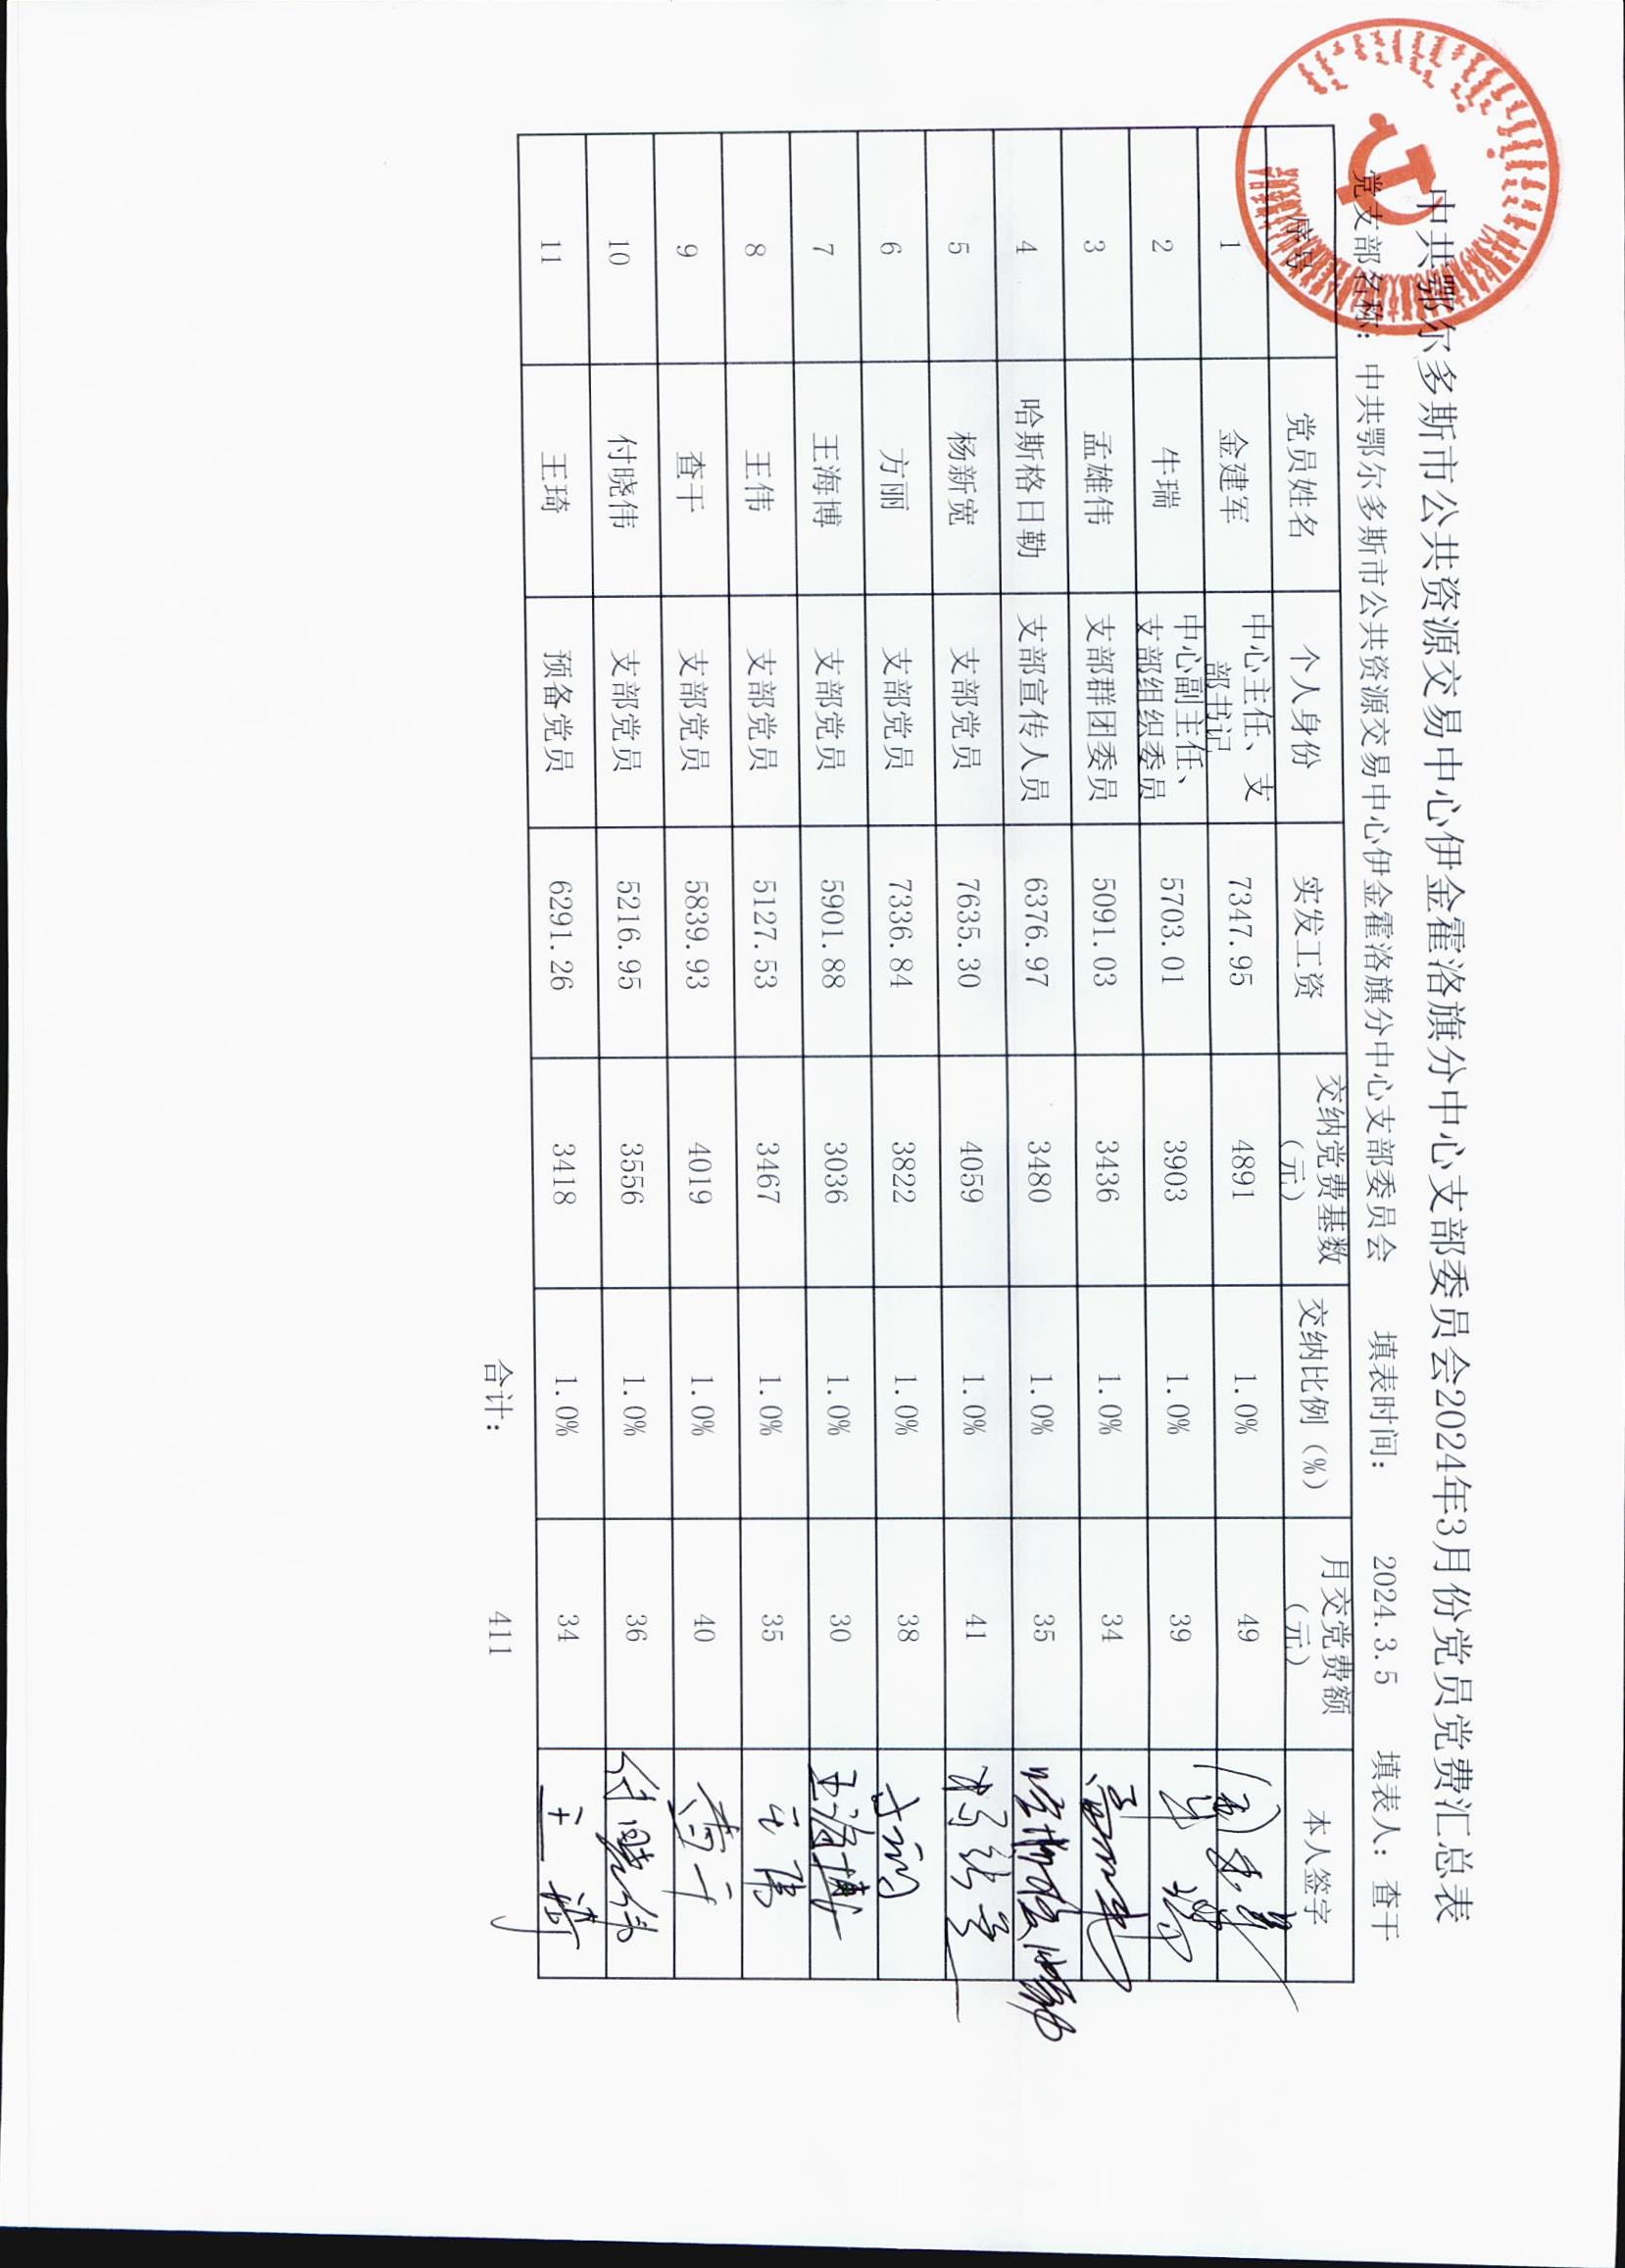 中共鄂尔多斯市公共资源交易中心伊金霍洛旗分中心支部委员会2024年3月份党员党费汇总表
党支部名称： 中共鄂尔多斯市公共资源交易中心伊金霍洛旗分中心支部委员会 填表时间： 2024.3.5 填表人： 查干
序号 党员姓名 个人身份 实发工资 交纳党费基数（元） 交纳比例（%） 月交党费额（元） 本人签字
1 金建军 中心主任、支部书记 7347.95 4891 1.0% 49
2 牛瑞 中心副主任、支部组织委员 5703.01 3903 1.0% 39 牛瑞
3 孟雄伟 支部群团委员 5091.03 3436 1.0% 34
4 哈斯格日勒 支部宣传人员 6376.97 3480 1.0% 35 哈斯格日勒
5 杨新宽 支部党员 7635.30 4059 1.0% 41 杨新宽
6 方丽 支部党员 7336.84 3822 1.0% 38 方丽
7 王海博 支部党员 5901.88 3036 1.0% 30 王海博
8 王伟 支部党员 5127.53 3467 1.0% 35 王伟
9 查干 支部党员 5839.93 4019 1.0% 40 查干
10 付晓伟 支部党员 5216.95 3556 1.0% 36 付晓伟
11 王琦 预备党员 6291.26 3418 1.0% 34 王琦
合计： 411